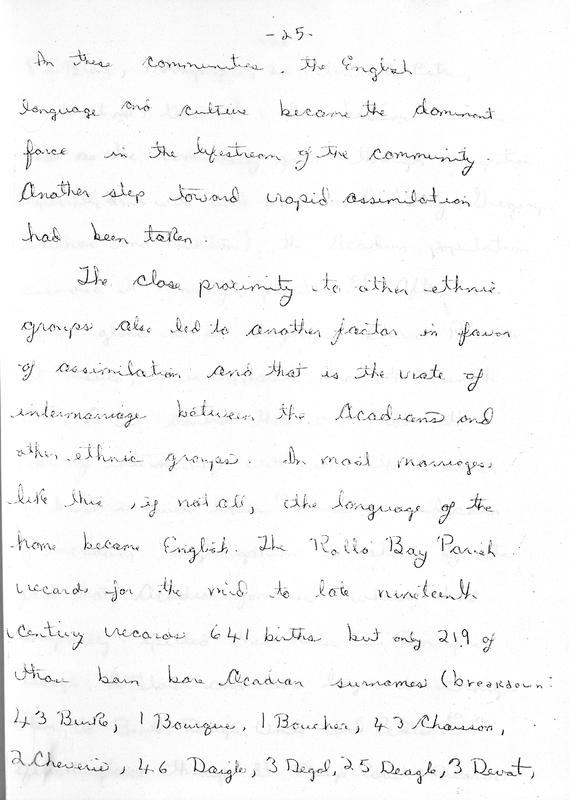 -25-
In these communities, the English
language and culture became the dominant
force in the lifestream of the community.
Another step toward rapid assimilation
had been taken.
The close proximity to other ethnic
groups also led to another factor in favor
of assimilation and that is the rate of
intermarriage between the Acadians and
other ethnic groups. In most marriages
like this, if not all, the language of the
home became English. The Rollo Bay Parish
records for the mid to late nineteenth
century records 641 births but only 219 of
those born bore Acadian surnames (breakdown:
43 Burke, 1 Bourque, 1 Boucher, 43 Chaisson,
2 Cheverie, 46 Daigle, 3 Degol, 25 Deagle, 3 Devat,